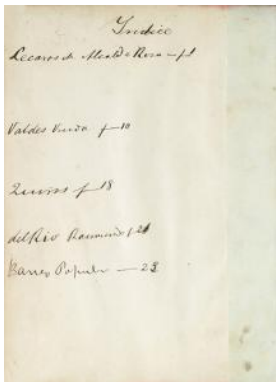 Indice
Lecaros de Alcalde Rosa — f 1
Valdes Vinda f — 10
f 18
del Rio Raimundo f 21
Banco Popular — 23